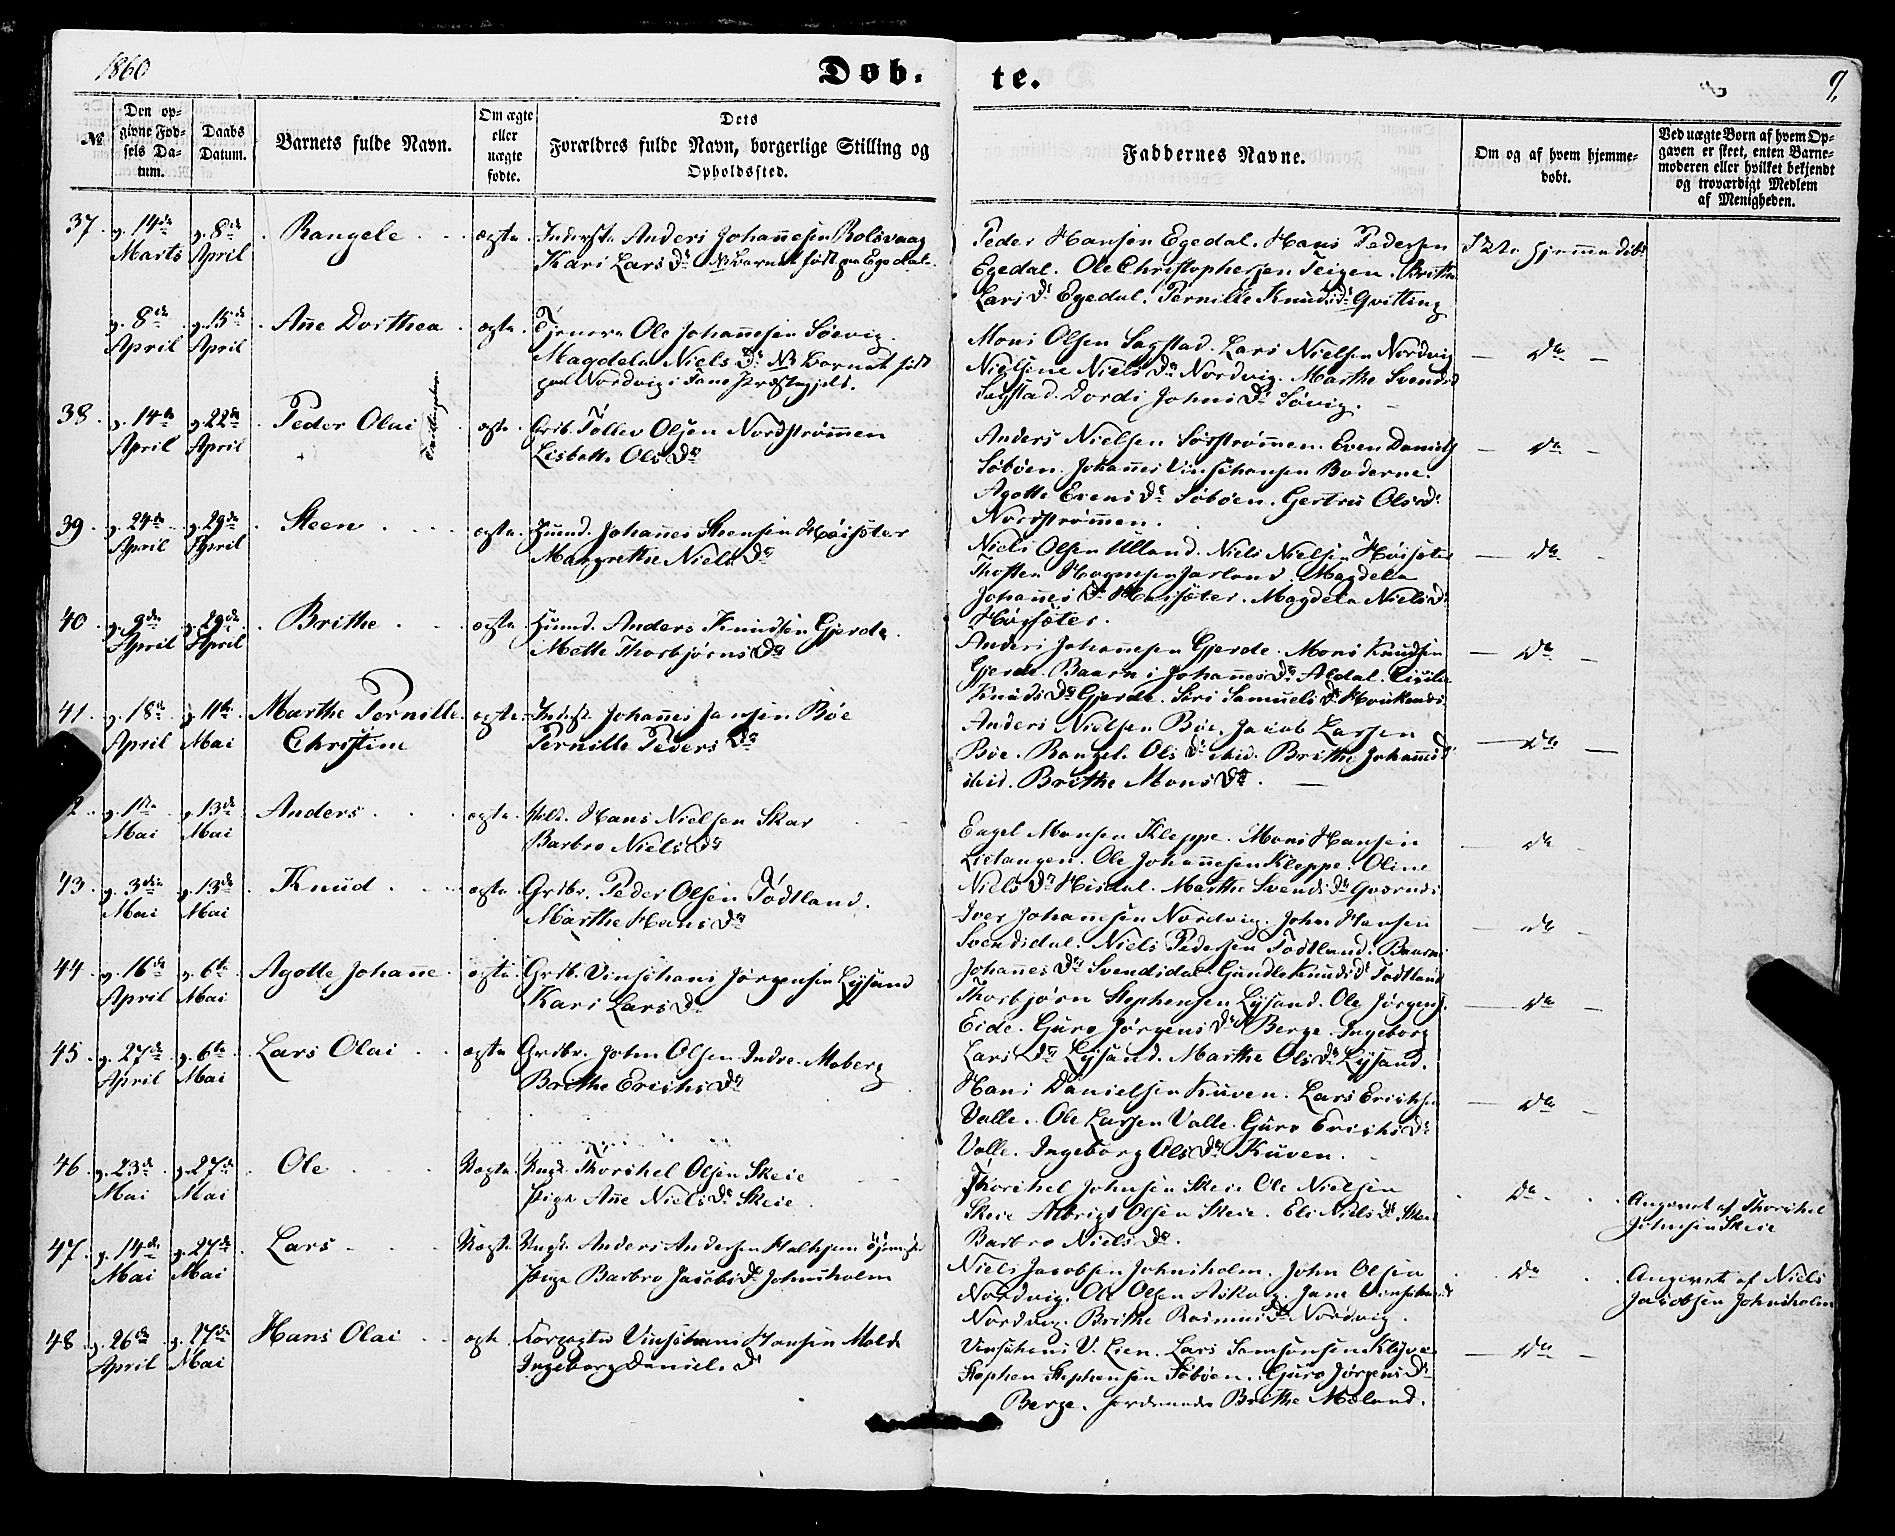 1860
Døb-
te.
9,
№
Den op-
givne Fød-
sels Da-
tum.
Daabs
Datum.
Barnets fulde Navn.
Om ægte
eller
uægte
fødte.
Dets
Forældres fulde Navn, borgerlige Stilling og
Opholdssted.
Faddernes Navne.
Om og af hvem hjemme-
døbt.
Ved uægte Børn af hvem Op-
gaven er skeet, enten Barne-
moderen eller hvilket bekjendt
og troværdigt Medlem
af Menigheden.
37. g. 14de g. 8de Rangele ægte. Anders Johannesen Rolsvaag
Marts April Kari Lars Dr NB Barnet født paa Egedal.
Peder Hansen Egedal. Hans Pedersen
Egedal. Ole Christophersen Teigen. Brithe
Lars Dr Egedal. Pernille Knuds Dr Qvitting
Ikke hjemmedøbt
g. 8de g. 15de Ane Dorthea ægte. Tjener Ole Johannesen Søevig.
April April Magdela Niels Dr NB Barnet født
paa Nordvig i Fane Præstegjeld.
Mons Olsen Sagstad. Lars Nielsen Nordvig
Nielsine Niels Dr Nordvig. Marthe Svends
Sagstad. Dordi Johns Dr Søvig.
— Do —
38. g. 14de g. 22de Peder Olai ægte. Grbr. Tollev Olsen Nordstrømmen
April April Lisbeth Ols Dr
Anders Nielsen Sørstrømmen. Even Daniels
Søbøen. Johannes Vinsentsen Boderne.
Agotte Evens Dr Søbøen. Gertru Ols Dr
Nordstrømmen.
— Do —
39. g. 24de g. 29de Steen ægte. Huusmd. Johannes Steensen Høisæter
April April Margrethe Niels Dr
Niels Olsen Ulland. Niels Nielsen Høisæter
Magdela
Johannes Dr Høisæter. Magdela Niels Dr
Høisæter.
— Do —
40. g. 9de g. 29de Brithe ægte. Huusmd. Anders Knudsen Gjerde.
April April Mette Thorbjørns Dr
Anders Johannesen Gjerde. Mons Knudsen
Gjerde. Johannes Dr Aldal. Cicilie
Knuds Dr Gjerde. Siri Samuels Dr
— Do —
41. g. 18de g. 11te Marthe Pernille ægte. Johannes Jansen Bøe
April Mai Christine Pernille Peders Dr
Anders Nielsen Bøe. Jacob Larsen
Bøe. Rangel. Ols Dr ibid. Brithe Johannes Dr
ibid. Brithe Mons Dr.
— Do —
2 g. 1ste g. 13de Anders ægte. Hans Nielsen Skar
Mai Mai Barbro Niels Dr
Engel Monsen Kleppe. Mons Hansen
Lietangen. Ole Johannesen Kleppe. Oline
Niels Dr Hisdal. Marthe Svends Dr
— Do —
43. g. 3die g. 13de Knud ægte. Grdbr. Peder Olsen Tødtland.
Mai Mai Marthe Hans Dr
Iver Johannesen Nordvig. John Hansen
Svendsdal. Niels Pedersen Tødtland.
Johannes Dr Svendsdal. Gundle Knuds Dr Tødtland
— Do —
44. g. 16de g. 6te Agotte Johanne ægte. Grdbr. Vinsents Jørgensen Lysand
April Mai Kari Lars Dr
Thorbjørn Stephensen Lysand. Ole Jørgens.
Eide. Guro Jørgens Dr Berge. Ingeborg
Lars Dr Lysand. Marthe Ols Dr Lysand.
— Do —
45. g. 27de g. 6te Lars Olai ægte Grdbr. John Olsen Indre-Moberg
April Mai Brithe Erichs Dr
Hans Danielsen Kuven. Lars Erichsen
Valle. Ole Larsen Valle. Guro Erichs Dr
Valle. Ingeborg Ols Dr Kuven.
— Do —
46. g. 23de g. 27de Ole Uægte. Ungk. Thorchel Olsen Skeie
Mai Mai Pige Ane Niels Dr Skeie
Thorchel Johnsen Skeie Ole Nielsen
Skeie Albrigt Olsen Skeie. Eli Niels Dr Skeie
Barbro Niels Dr.
Do
Angivet af Thorchel
Johnsen Skeie
47. g. 14de g. 27de Lars Uægte Ungk. Anders Andersen Halhjem
Mai Mai Pige Barbro Jacobs Dr Johnsholm
Niels Jacobsen Johnsholm. John Olsen
Nordvig. Ole Olsen Askvig. Jane
Nordvig. Brithe Rasmus Dr Nordvig.
Do
Angivet af Niels
Jacobsen Johnsholm
48. g. 26de g. 27de Hans Olai ægte Forpagter Vinsents Hansen Molde
April Mai Ingeborg Daniels Dr
Vinsents V. Lien. Lars Samsonsen Klyve
Stephen Stephensen Søbøen. Guro Jørgens Dr
Berge. Jordemoder Brithe Moland.
— Do —